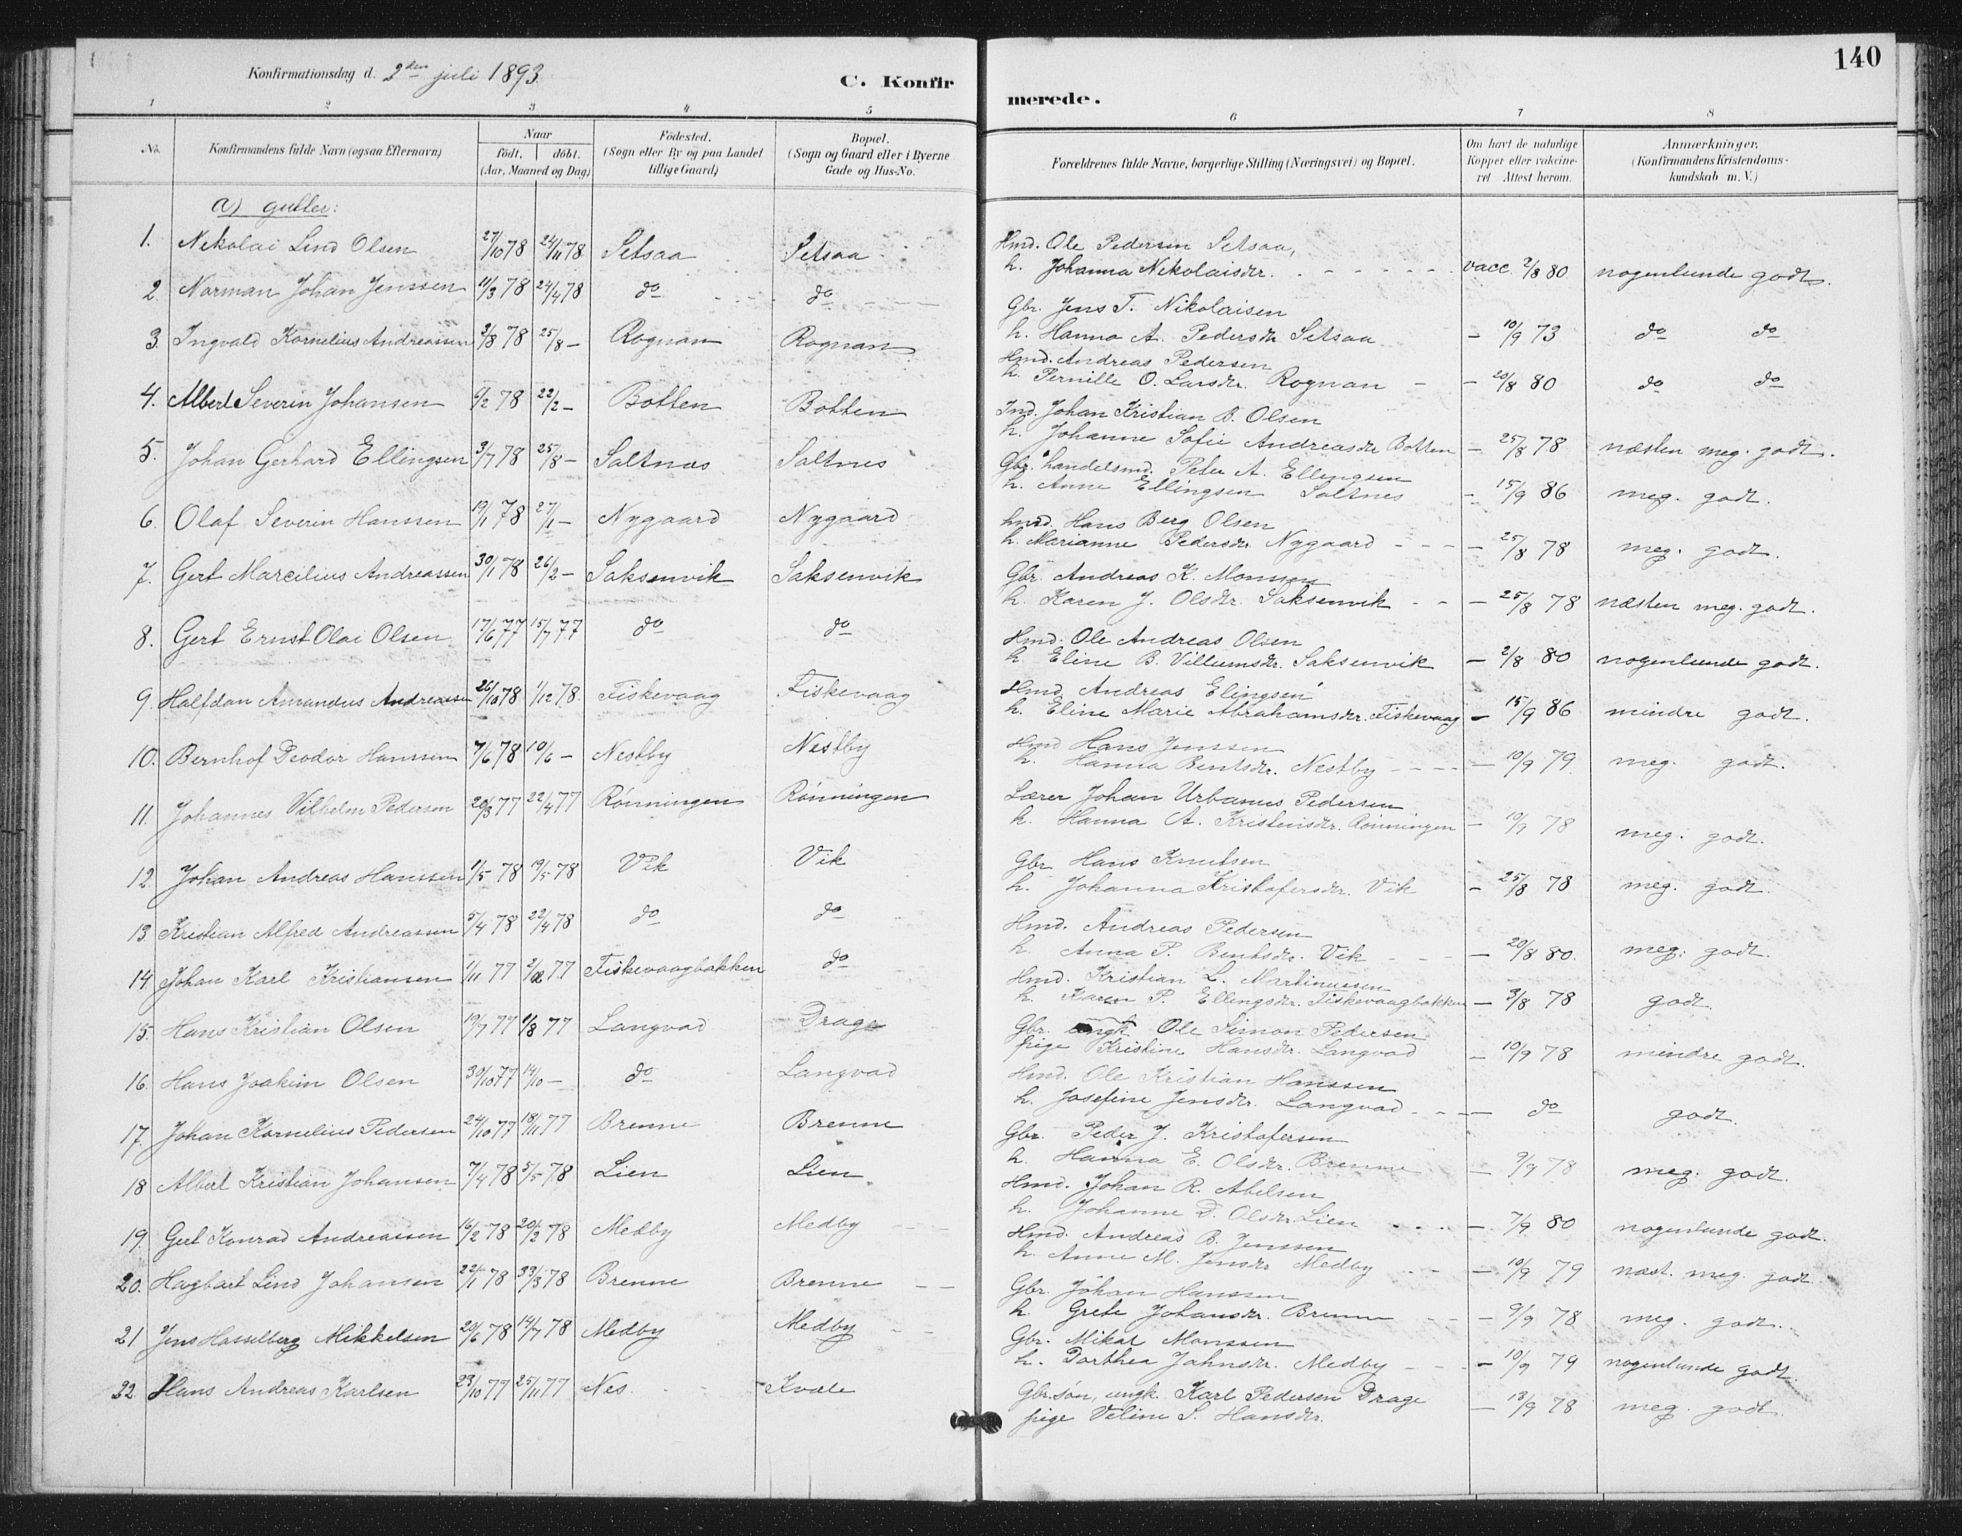 140
Konfirmationsdag d. 2den juli 1893
C. Konfirmerede.
1 2 3 4 5 6 7 8
No. Konfirmandens fulde Navn (ogsaa Efternavn) Naar födt. döbt. (Aar, Maaned og Dag) Födested. (Sogn eller By og paa Landet tillige Gaard) Bopæl. (Sogn og Gaard eller i Byerne Gade og Hus-No. Forældrenes fulde Navne, borgerlige Stilling (Næringsvei) og Bopæl. Om havt de naturlige Kopper eller vakcineret Attest herom. Anmærkninger, (Konfirmandens Kristendomskundskab m. V.)
a) gutter:
1. Nikolai Lind Olsen 27/10 78 24/11 78 Setsaa Setsaa Hmd. Ole Pedersen Setsaa,
h. Johanna Nikolaisdr. vacc. 2/8 80 nogenlunde godt.
2. Norman Johan Jenssen 11/3 78 24/4 78 do do Gbr. Jens T. Nikolaisen
h. Hanna A. Pedersdr Setsaa - 10/9 73 do do
3. Ingvald Kornelius Andreassen 3/8 78 25/8 - Rognan Rognan Hmd. Andreas Pedersen
h. Pernille O. Larsdr. Rognan - 20/8 80 do do
4. Albert Severin Johansen 6/2 78 22/2 - Botten Botten Ind. Johan Kristian B. Olsen
h. Johanne Sofie Andreasdr Botten - 25/8 78 næsten meg. godt.
5. Johan Gerhard Ellingsen 3/7 78 25/8 - Saltnæs Saltnes Gbr. & handelsmd. Peter A. Ellingsen
h. Anne Ellingsen Saltnes - 15/9 86 meg. godt.
6. Olaf Severin Hanssen 19/1 78 27/1 - Nygaard Nygaard hmd. Hans Berg Olsen
h. Marianne Pedersdr. Nygaard - 25/8 78 meg. godt.
7. Gert Marcilius Andreassen 30/1 78 26/2 - Saksenvik Saksenvik Gbr. Andreas K. Monssen
h. Karen J. Olsdr. Saksenvik - 25/8 78 næsten meg. godt.
8. Gert Ernst Olai Olsen 17/6 77 15/7 77 do do Hmd. Ole Andreas Olsen
h. Eline B. Villumsdr. Saksenvik - 2/8 80 nogenlunde godt.
9. Halfdan Amandus Andreassen 26/10 78 1/12 78. Fiskevaag Fiskevaag Hmd. Andreas Elingsen
h. Eline Marie Abrahamsdr. Fiskevaag - 15/9 86 mindre godt.
10. Bernhof Deodor Hanssen 7/6 78 10/6 - Nestby Nestby Hmd Hans Jenssen
h. Hanna Bentsdr. Nestby - 10/9 79. meg. godt.
11. Johannes Vilhelm Pedersen 20/3 77 22/4 77 Rønningen Rønningen Lærer Johan Urbanus Pedersen
h. Hanna A. Kristensdr. Rønningen - 10/9 78 meg. godt.
12. Johan Andreas Hanssen 1/5 78 19/5 78 Vik Vik Gbr Hans Knutsen
h. Johanna Kristofersdr. Vik - 25/8 78 meg. godt.
13. Kristian Alfred Andreassen 5/4 78 22/4 78 do do Hmd. Andreas Pedersen
h. Anna P. Bentsdr. Vik - 20/8 80. meg. godt.
14 Johan Karl Kristiansen 1/11 77 2/12 77 Fiskevaagbakken do Hmd. Kristian L. Martinussen
h. Karen P. Ellingsdr. Fiskevaagbakken - 3/8 78 godt.
15. Hans Kristian Olsen 19/7 77 1/8 77 Langvad Drage Gbr. ungk Ole Simon Pedersen
pige Kristine Hansdr. Langvad - 10/9 78 mindre godt.
16. Hans Joakim Olsen 30/10 77 14/10 - do Langvad Hmd. Ole Kristian Hanssen
h. Josefine Jensdr. Langvad - do godt.
17. Johan Kornelius Pedersen 24/10 77 18/11 77 Brenne Brenne Gbr. Peder J. Kristofersen
h. Hanna E. Olsdr. Brenne - 9/9 78 meg. godt.
18 Albert Kristian Johansen 7/4 78 5/5 78 Lien Lien Hmd. Johan R. Abelsen
h. Johanne D. Olsdr Lien - 7/9 80 nogenlunde godt.
19. Gert Konrad Andreassen 16/2 78 20/2 78 Medby Medby Hmd. Andreas B. Jenssen
h. Anne M. Jensdr Medby - 10/9 79 næst. meg. godt.
20. Hagbart Lind Johansen 22/1 78 33/3 78 Brenne Brenne Gbr. Johan Hanssen
h. Grete Johansdr. Brenne - 9/9 78 meg. godt.
21 Jens Hasselberg Mikkelsen 20/6 78 14/7 78 Medby Medby Gbr. Mikal Monssen
h. Dorthea Johnsdr. Medby - 10/9 79 nogenlunde godt.
22. Hans Andreas Karlsen 23/10 77 25/11 77 Nes Kvæle Gbr.søn, ungk. Karl Pedersen Drage
pige Veline S. Hansdr. - 18/9 78 meg. godt.